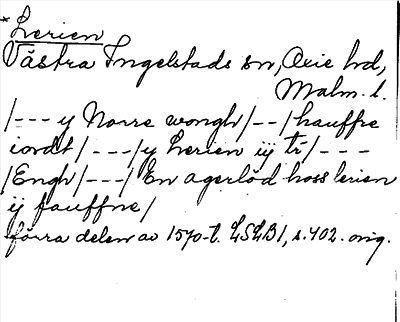 *Lerien
Västra Ingelstads sn, Oxie hd,
Malm. l.
/--- y Norre wongh /--/ hauffre
iordt /---/ y Lerien iij tr /---
/Engh /---/ En agerlöd hoss lerien
ij fauffne /
förra delen av 1570-t. LSLB 1, s. 402. orig.